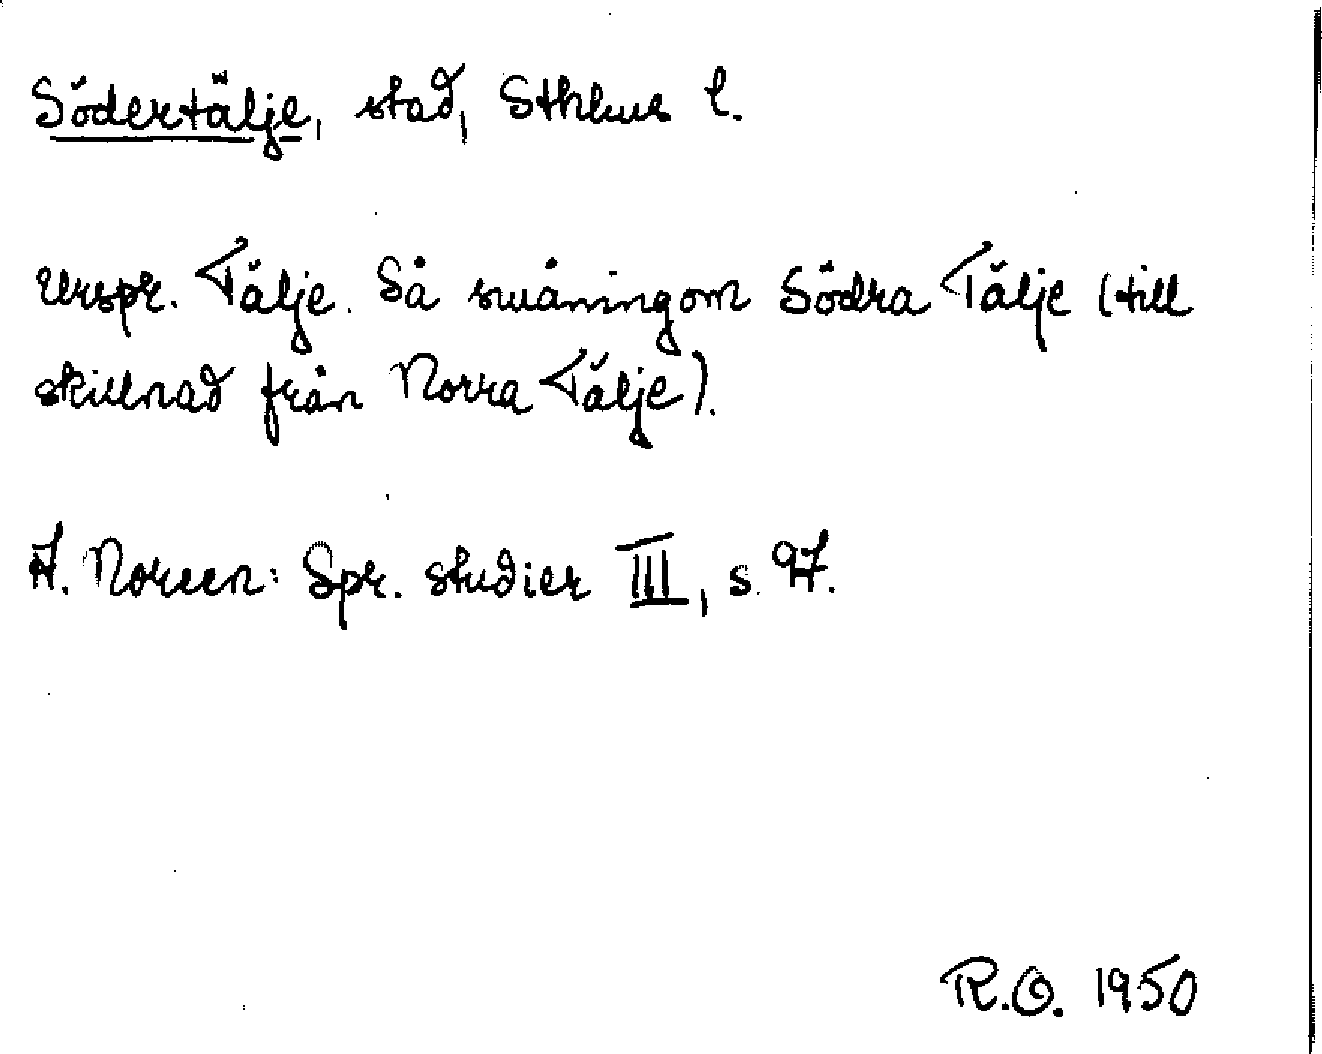 Södertälje, stad, Sthlms l.
Urspr. Tälje. Så småningom Södra Tälje (till
skillnad från Norra Tälje).
A. Noreen: Spr. studier III, s. 97.
R.O. 1950